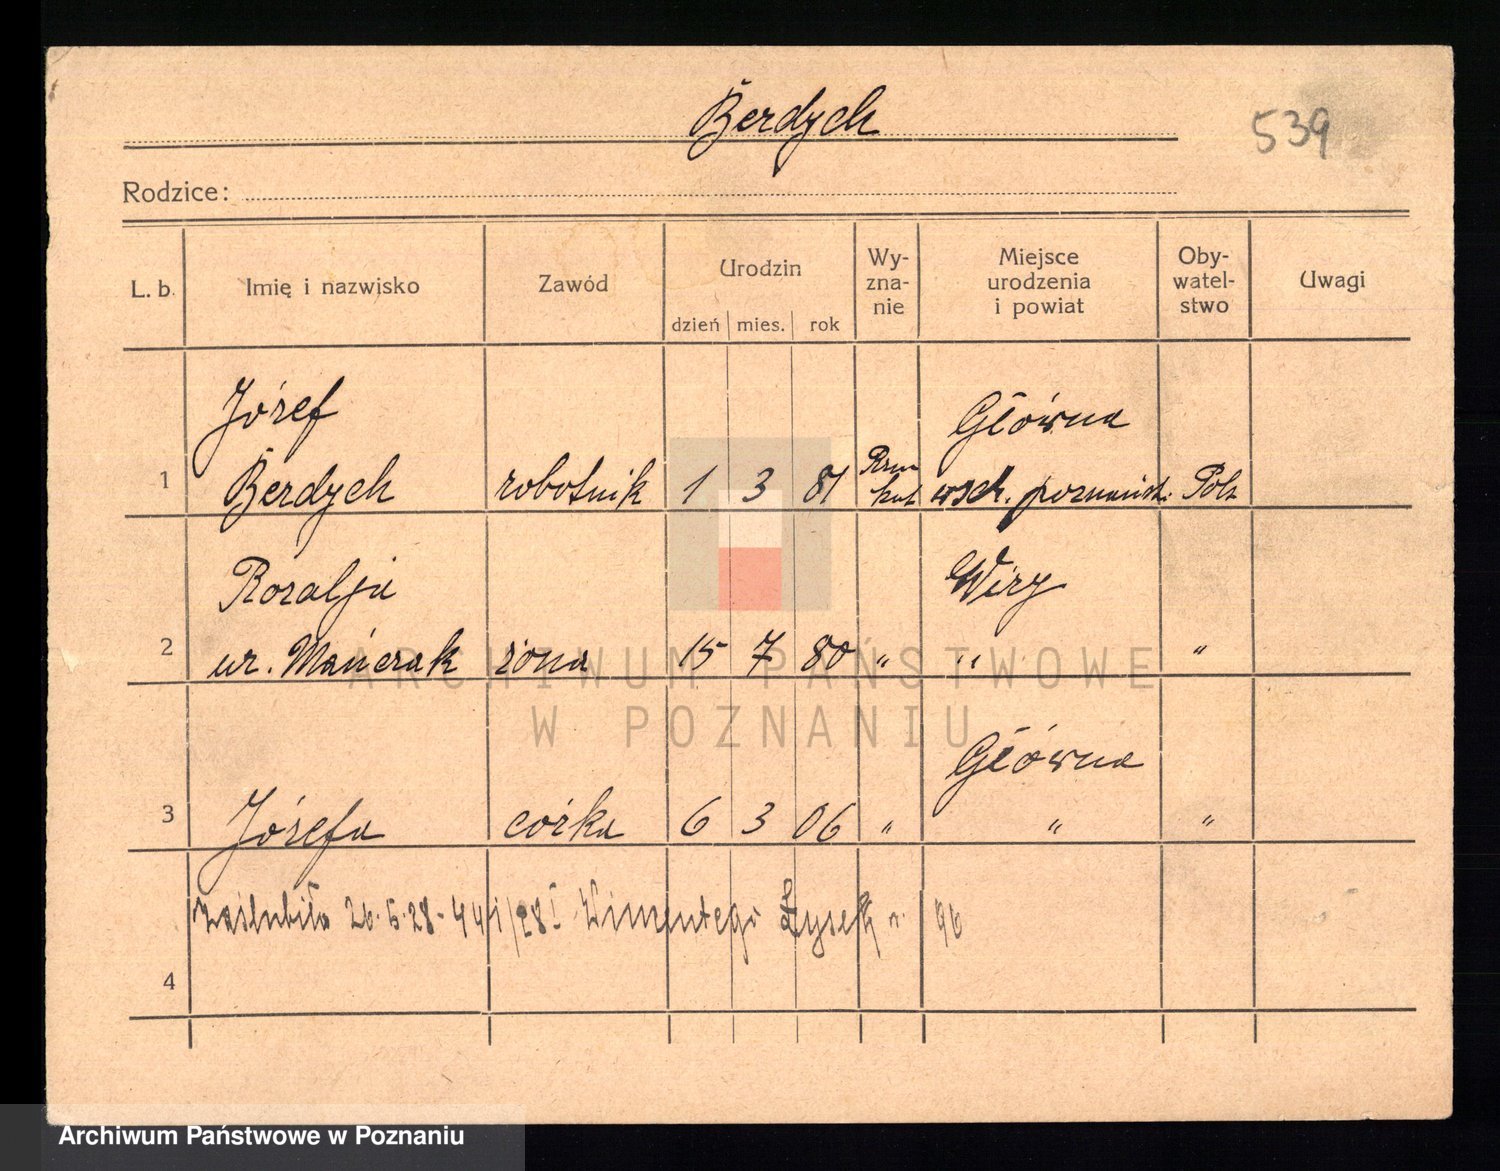 Berdych
539
Rodzice:
L. b. Imię i nazwisko Zawód Urodzin dzień mies. rok Wy-zna-nie Miejsce urodzenia i powiat Oby-watel-stwo Uwagi
Józef Główna
1 Berdych robotnik 1 3 81 Rzm kat wsch. poznańsk. Pols
Rozalja Wiry
2 ur. Mańczak żona 15 7 80 " " "
Główna
3 Józefa córka 6 3 06 " " "
zaślubiła 26.5.28 - 441/28 I Wincentego Łysek r. 96
4
ARCHIWUM PAŃSTWOWE
W POZNANIU
Archiwum Państwowe w Poznaniu